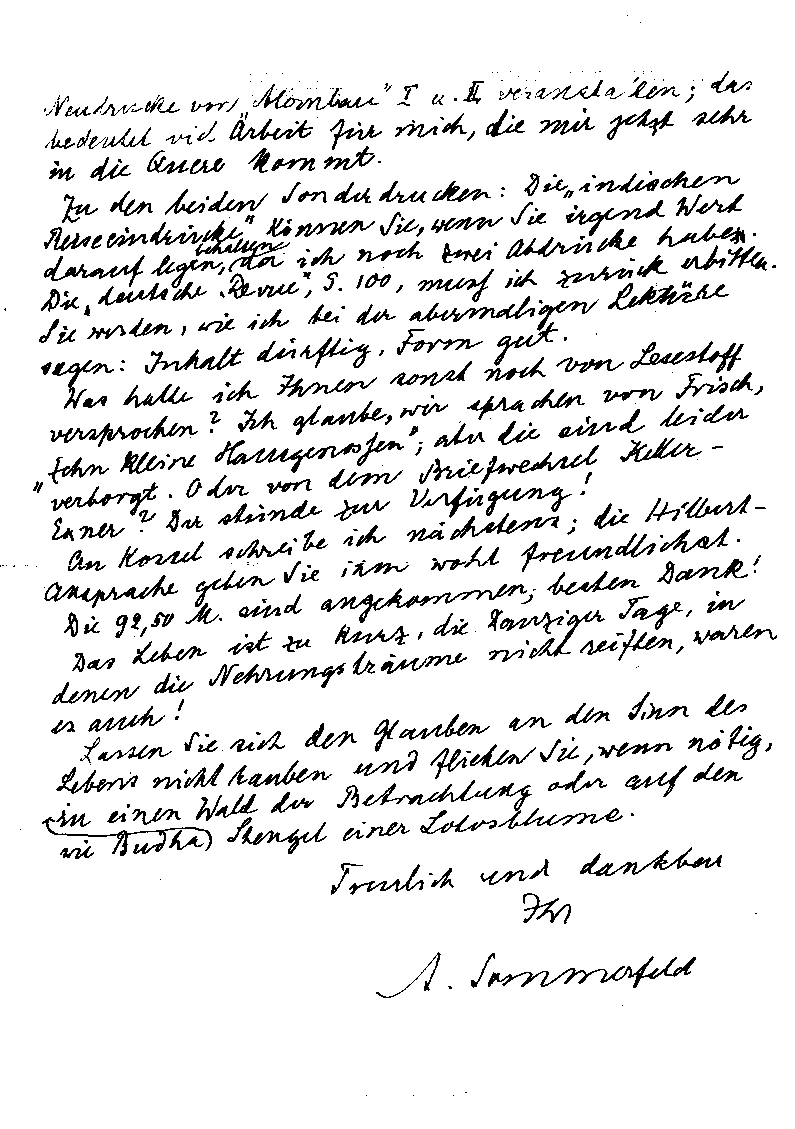 Neudrucke von „Atombau" I u. II veranstalten; das
bedeutet viel Arbeit für mich, die mir jetzt sehr
in die Quere kommt.
Zu den beiden Sonderdrucken: Die „indischen
Reiseeindrücke" können Sie, wenn Sie irgend Wert
darauf legen, behalten, da ich noch zwei Abdrücke habe.
Die „deutsche Revue", S. 100, muss ich zurück erbitten.
Sie werden, wie ich bei der abermaligen Lektüre
sagen: Inhalt dürftig, Form gut.
Was hatte ich Ihnen sonst noch von Lesestoff
versprochen? Ich glaube, wir sprachen von Frisch,
„Zehn kleine Hausgenossen"; aber die sind leider
verborgt. Oder von dem Briefwechsel Keller-
Exner? Der stünde zur Verfügung!
An Kossel schreibe ich nächstens; die Hilbert-
Ansprache geben Sie ihm wohl freundlichst.
Die 92,50 M. sind angekommen; besten Dank!
Das Leben ist zu kurz, die Danziger Tage, in
denen die Nehrungsträume nicht reiften, waren
es auch!
Lassen Sie sich den Glauben an den Sinn des
Lebens nicht rauben und flichen Sie, wenn nötig,
in einen Wald der Betrachtung oder auf den
(wie Budha) Stengel einer Lotosblume.
Treulich und dankbar
Ihr
A. Sommerfeld